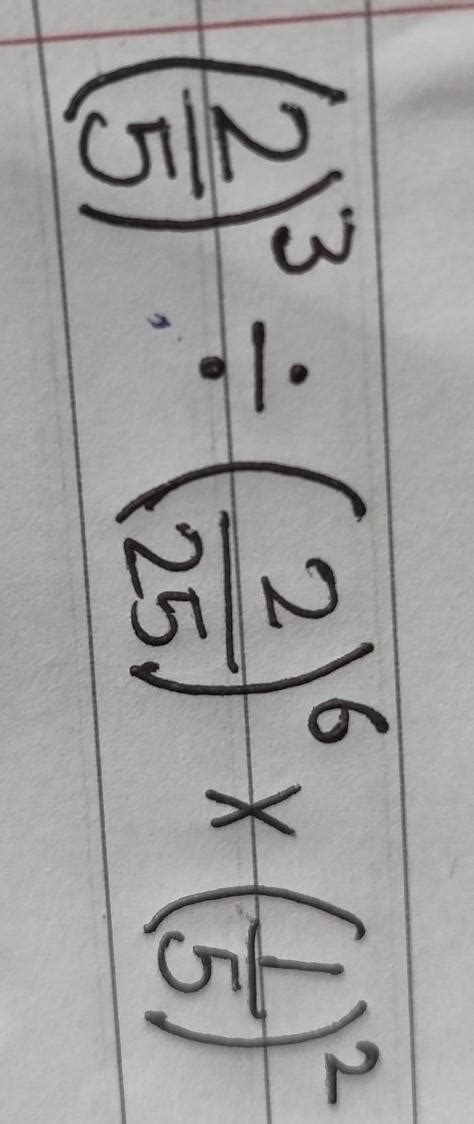 (2/5)³ ÷ (2/25)⁶ × (1/5)²